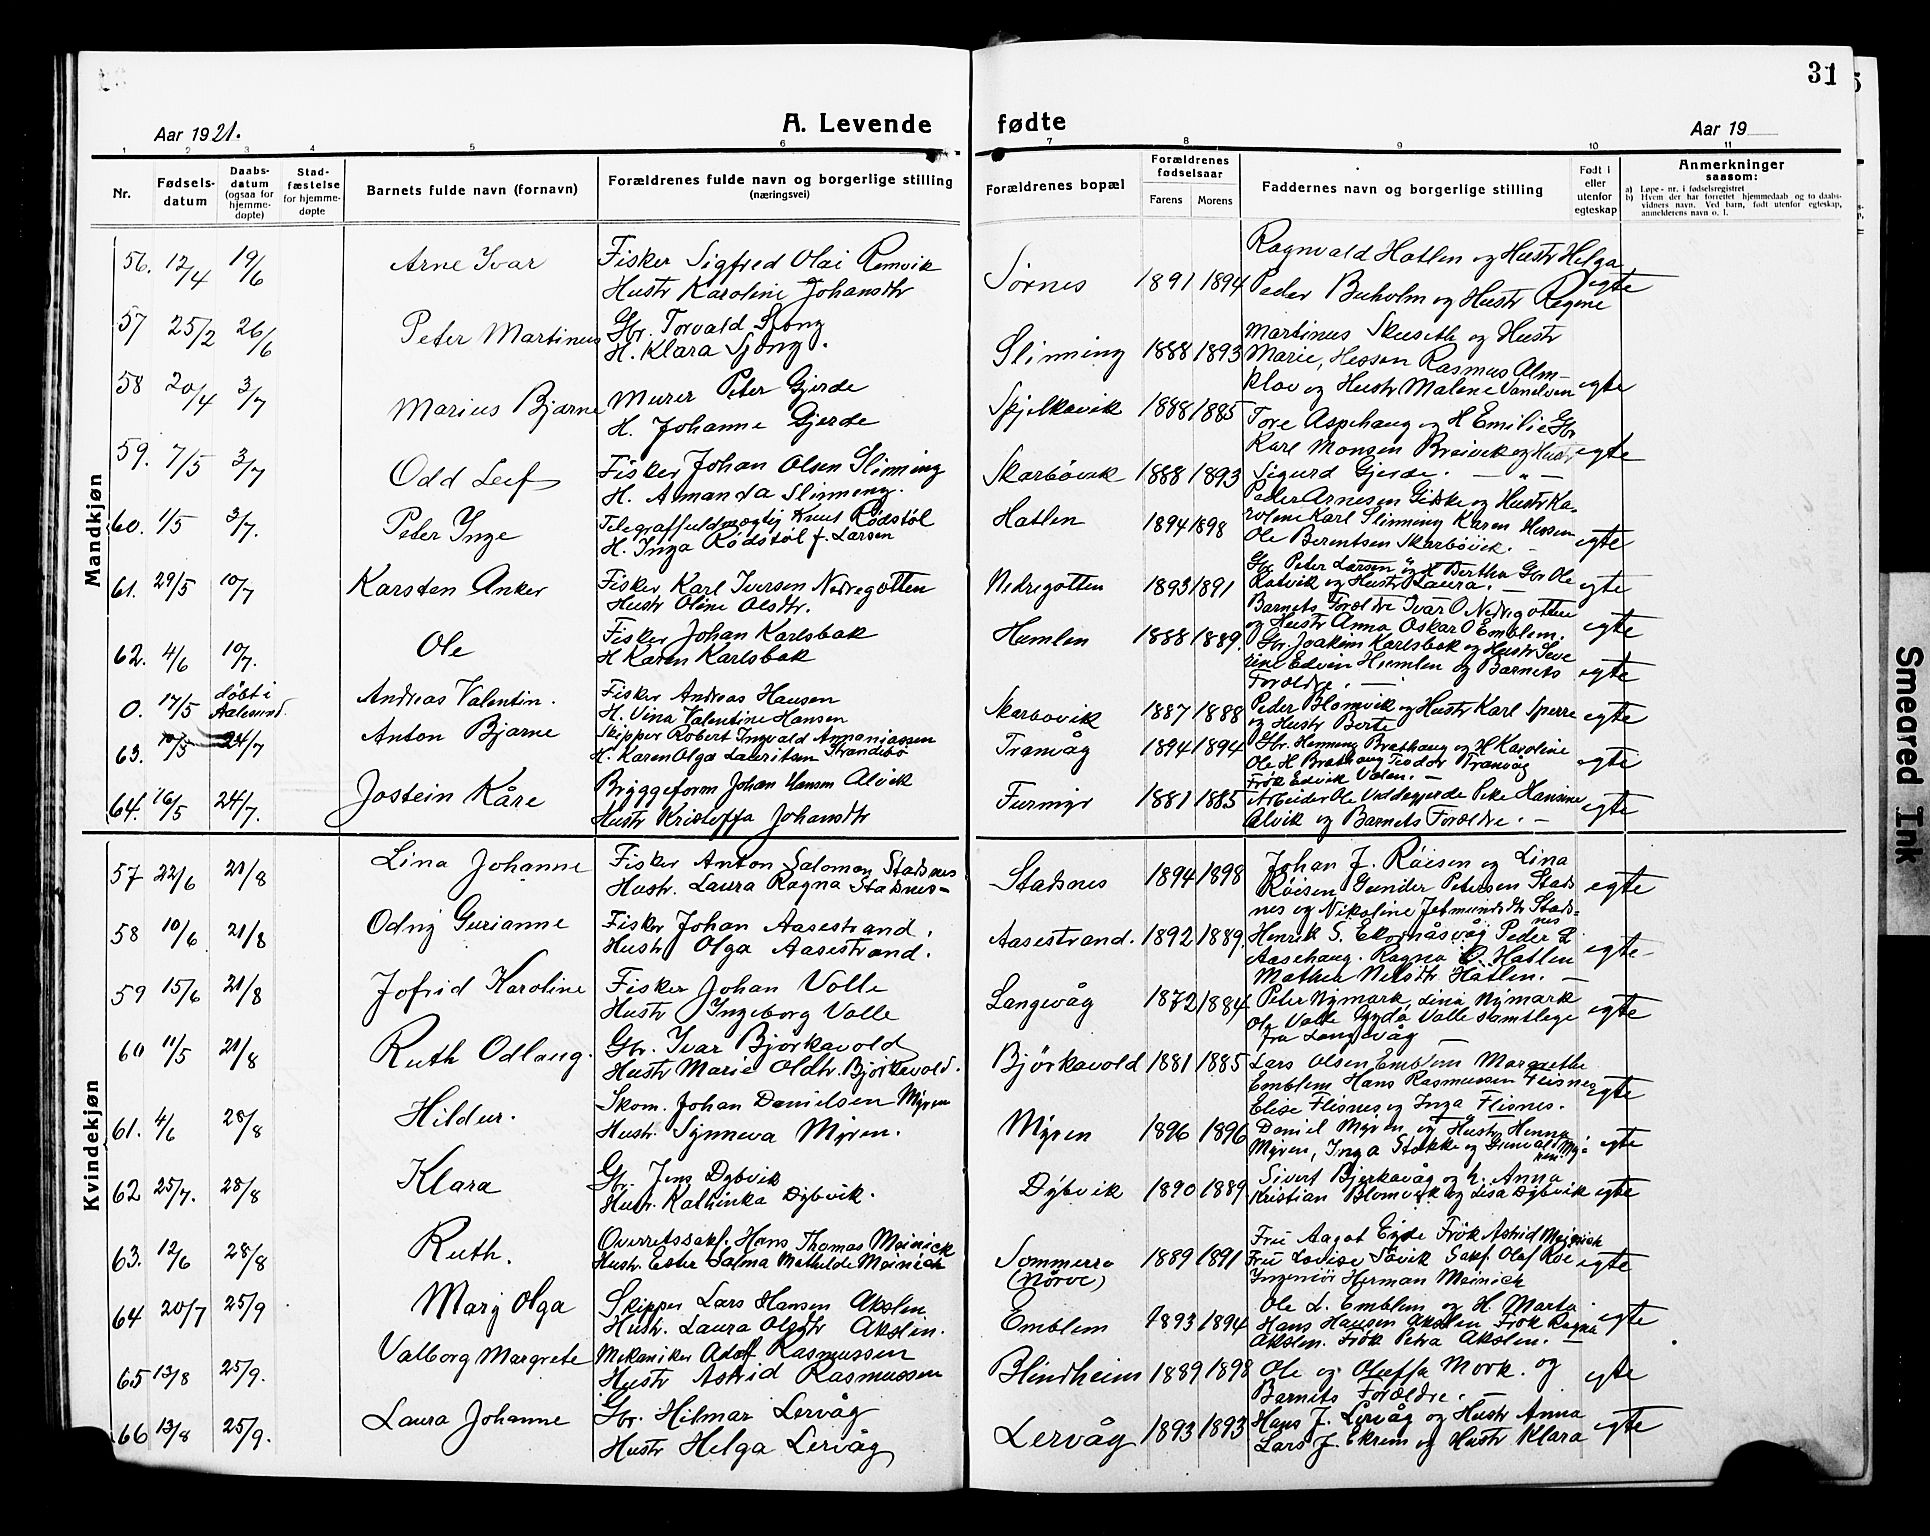 31
Aar 1921.
A. Levende fødte
Aar 19
1 2 3 4 5 6 7 8 9 10 11
Nr. Fødsels-datum Daabs-datum (ogsaa for hjemme-døpte) Stad-fæstelse for hjemme-døpte Barnets fulde navn (fornavn) Forældrenes fulde navn og borgerlige stilling (næringsvei) Forældrenes bopæl Forældrenes fødselsaar Farens Morens Faddernes navn og borgerlige stilling Født i eller utenfor egteskap Anmerkninger saasom:
a) Løpe-nr. i fødselsregistret
b) Hvem der har forrettet hjemmedaab og to daabs-vidners navn. Ved barn, født utenfor egteskap, anmelderens navn o. l.
Mandkjøn
56. 12/4 19/6 Arne Ivar Fisker Sigfred Olai Remvik Hustr Karoline Johansdtr Sørnes 1891 1894 Ragnvald Hatlen og Hustr Helga Peder Buholm og Hustr Regine egte
57 25/2 26/6 Peter Martinus Gbr. Torvald Sjong H. Klara Sjong. Slinning 1888 1893 Martinus Skuseth og Hustr Marie, Hessen Rasmus Alm-klov og Hustr Malene Vanelven egte
58 20/4 3/7 Marius Bjarne Murer Peter Gjerde H. Johanne Gjerde Spjelkavik 1888 1885 Tore Aspehaug og H Emilie Gbr Karl Monsen Breivik og Hustr egte
59. 7/5 3/7 Odd Leif Fisker Johan Olsen Slinning H. Amanda Slinning. Skarbövik 1888 1893 Sigurd Gjerde. — " — Peder Arnesen Giske og Hustr Ka-
60. 1/5 3/7. Peter Inge Telegraffuldmægtig Knut Rödstöl H. Inga Rödstöl f. Larsen Hatlen 1894 1898 roline Karl Slinning Karen Hessen Ole Berentsen Skarbövik. — egte
61. 29/5 10/7 Karsten Anker Fisker Karl Iversen Nedregotten Hustr Oline Olsdtr. Nedregotten 1893 1891 Gbr Peter Larsen og H Bertha Gbr Ole Ratvik og Hustr Laura. — egte Barnets Forældre Ivar O Nedregotten og Hustr Anna Oskar O Emblem. egte
62. 4/6 10/7. Ole Fisker Johan Karlsbak H Karen Karlsbak Humlen 1888 1889. Gbr Joakim Karlsbak og Hustr Seve rine Edvin Humlen og Barnets Forældre. — egte
0. 17/5 døbt i Aalesund. Andreas Valentin. Fisker Andreas Hansen H. Vina Valentine Hansen Skarbovik 1887 1888 Peder Blomvik og Hustr Karl Sperre og Hustr Berte egte
63. 10/5 24/7 Anton Bjarne Skipper Robert Ingvald Ananiassen H. Karen Olga Lauritsen Strandebö Tranvåg 1894 1894 Gbr. Henning Brathaug og H Karoline Ole H Brathaug Teodor Tranvåg Frök Edvik Valen. — egte
64. 16/5 24/7. Jostein Kåre Bryggeform Johan Hansen Alvik Hustr Kristoffa Johansdtr Furmyr 1881 1885 Arbeider Ole Veddegjerde Peke Hansine Alvik og Barnets Forældre. — egte
Kvindekjøn
57 22/6 21/8 Lina Johanne Fisker Anton Salomon Stadsnes Hustr. Laura Ragna Stadsnes— Stadsnes 1894 1898 Johan J. Röisen og Lina Röisen Gunder Petersen Stads nes og Nikoline Jetmundsdtr Stads-nes egte
58 10/6 21/8 Odny Gurianne Fisker Johan Aasestrand. Hustr Olga Aasestrand. Aasestrand. 1892 1889. Henrik S. Ekornåsvåg Peder L Aasehaug. Ragna O. Hatlen Mathea Nilsdtr Hatlen. — egte—
59 15/6 21/8 Jofrid Karoline Fisker Johan Volle Hustr Ingeborg Valle Langevåg 1872 1884 Peter Nymark, Lina Nymark Ole Valle Gyda Valle samtlige fra Langevåg — egte
60 11/5 21/8 Ruth Odlaug. Gbr. Ivar Bjorkavold Hustr Marie Oldtr. Björkavold. Björkavold 1881 1885 Lars Olsen Emblem Margrethe Emblem Hans Rasmussen Flisnes Elise Flisnes og Inga Flisnes. egte
61. 4/6 28/8 Hildur. Skom. Johan Danielsen Myren Hustr. Synneva Myren. Myren 1896 1896 Daniel Myren og Hustr Hanna Myren, Inga Stokke og Gunvald My-ren. egte
62 25/7. 28/8 Klara Gbr. Jens Dybvik Hustr. Kathinka Dybvik. Dybvik 1890 1889 Sivert Bjorkavåg og h. Anna Kristian Blomvik og Lisa Dybvik egte
63. 12/6 28/8 Ruth. Overretssakf. Hans Thomas Meinich Hustr. Ester Salma Mathilde Meinich Sommerro (Nörve) 1889 1891 Frü Aagot Eyde Frök Astrid Meinich Frü Lovise Sövik Sakf. Olaf Roe Ingeniör Herman Meinich egte
64 20/7 25/9 Mary Olga Skipper Lars Hansen Akslen Hustr. Laura Olsdtr Akslen. Emblem 1893 1894 Ole L. Emblem og H. Marta Hans Hansen Akslen Frök Ragna Akslen. Frök Petra Akslen. — egte
65 13/8 25/9. Valborg Margrete Mekaniker Adolf Rasmussen Hustr Astrid Rasmussen Blindheim 1889 1898 Ole og Oluffa Mork. og Barnets Forældre. — egte
66 13/8 25/9. Laura Johanne Gbr. Hilmar Lervåg Hustr Helga Lervåg Lervåg 1893 1893 Hans J. Lervåg og Hustr Anna Lars J. Ekrem og Hustr Klara egte
Smeared Ink